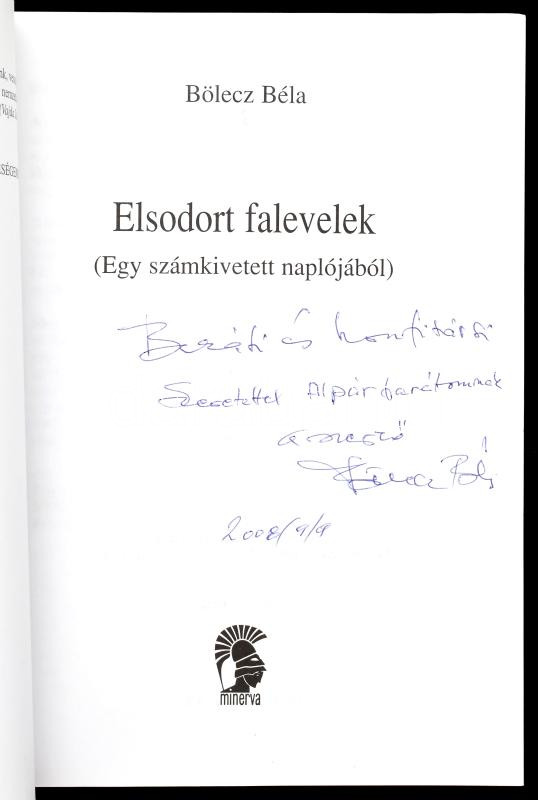 nk, vesz
Bölecz Béla
Elsodort falevelek
(Egy számkivetett naplójából)
Baráti és honfitársi
Szeretettel Alpár barátomnak
a szerző
Bölecz Béla
2008/9/9
minerva